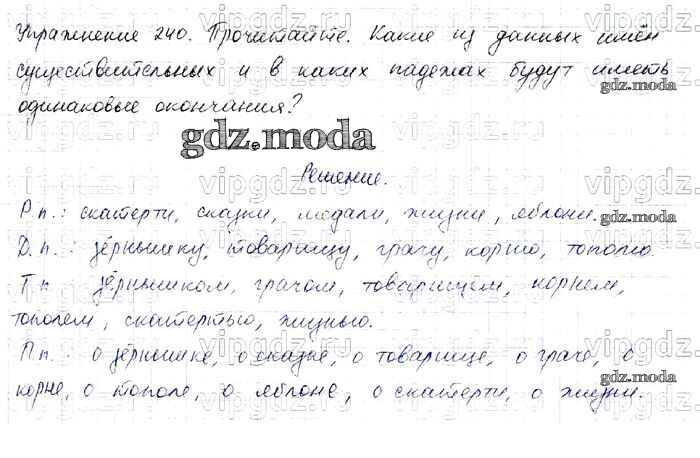 Упражнение 240. Прочитайте. Какие из данных имён
существительных и в каких падежах будут иметь
одинаковые окончания?
gdz.moda
Решение.
Р.п.: скатерти, сказки, медали, жизни, яблони.
gdz.moda
Д.п.: зёрнышку, товарищу, грачу, корню, тополю.
Т.п. зёрнышком, грачом, товарищем, корнем,
тополем, скатертью, жизнью.
П.п. о зёрнышке, о сказке, о товарище, о граче, о
gdz.moda
корне, о тополе, о яблоне, о скатерти, о жизни.